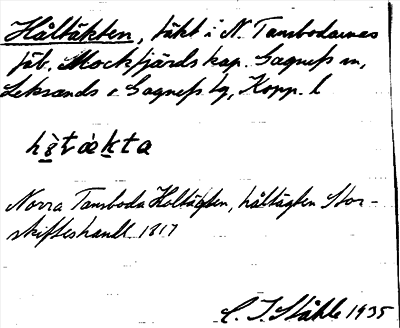 Håltäkten, täkt i N. Tansbodarnes
fäb. Mockfjärds kap. Gagnefs sn,
Leksands o Gagnefs tg, Kopp. l
Norra Tansboda Holtägten, håltägten Stor-
skifteshandl. 1817
C. I. Ståhle 1935